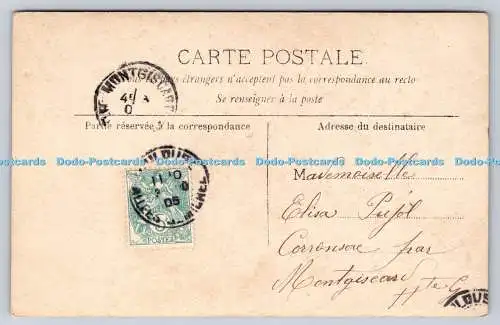 CARTE POSTALE
pays étrangers n'acceptent pas la correspondance au recto
Se renseigner à la poste
MONTGISCARD
Partie réservée à la correspondance
Adresse du destinataire
Dodo-Postcards Dodo-Postcards Dodo-Postcards Dodo-Postcards Dodo-Postcards
05
POSTES
Mademoiselle
Elisa Pujol
Corronsac par
Montgiscard
Hte G